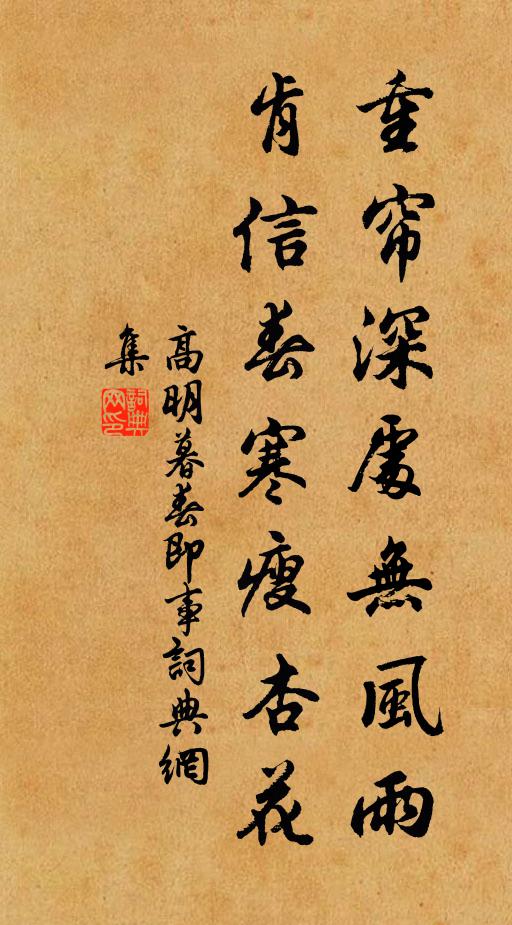 重帘深處無風雨
肯信春寒瘦杏花
高明暮春即事詞典網
集
詞典網印